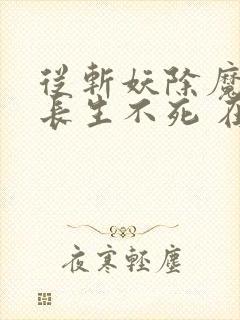 從斬妖除魔
長生不死
夜寒輕塵